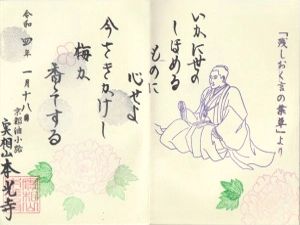 「残しおく言の葉草」より
いかに世の
しほめる
ものに
心せよ
今さきかけし
梅か
香そする
令和四年一月十八日
京都油小路
実相山本光寺